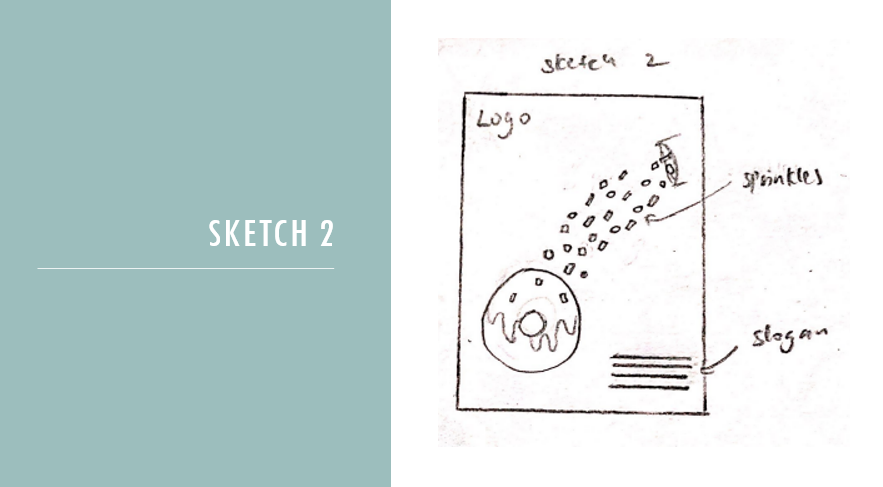 SKETCH 2
sketch 2
Logo
sprinkles
slogan